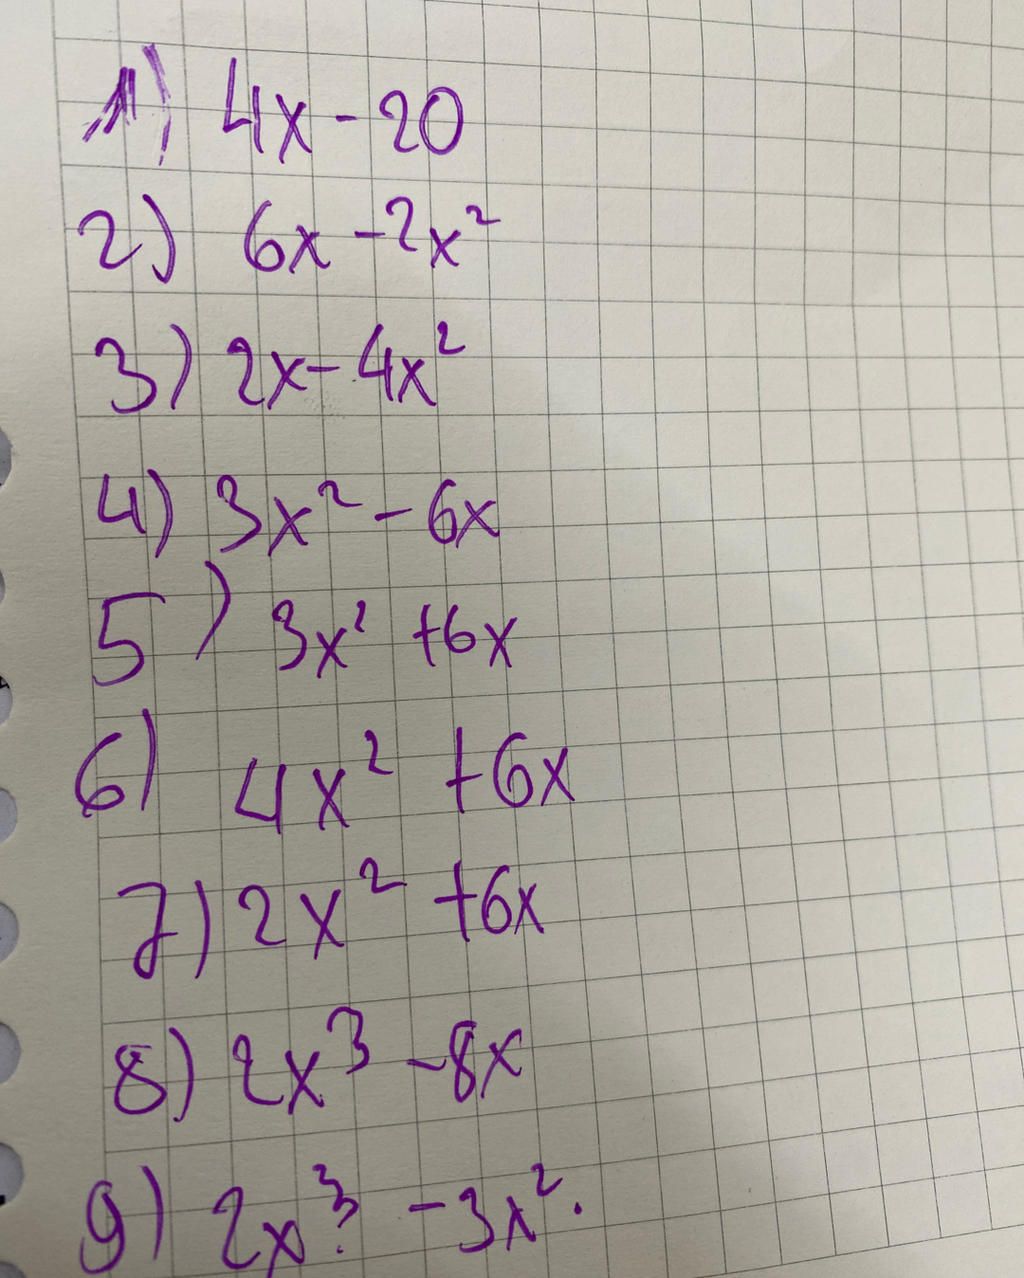 1) 4x - 20
2) 6x - 2x²
3) 2x - 4x²
4) 3x² - 6x
5) 3x² + 6x
6) 4x² + 6x
7) 2x² + 6x
8) 2x³ - 8x
9) 2x³. - 3x².